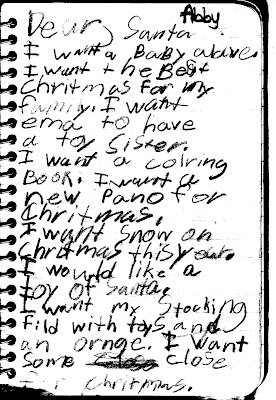 Abby
Dear, Santa
I want a Baby alive.
I want the Best
Chritmas for my
family. I want
ema to have
a toy Sister.
I want a colring
Book. I want a
new Pano for
Chritmas.
I want Snow on
Chritmas this year.
I would like a
toy of Santa.
I want my Stocking
Filld with toys and
an ornge. I want
Some close
For Chritmas.